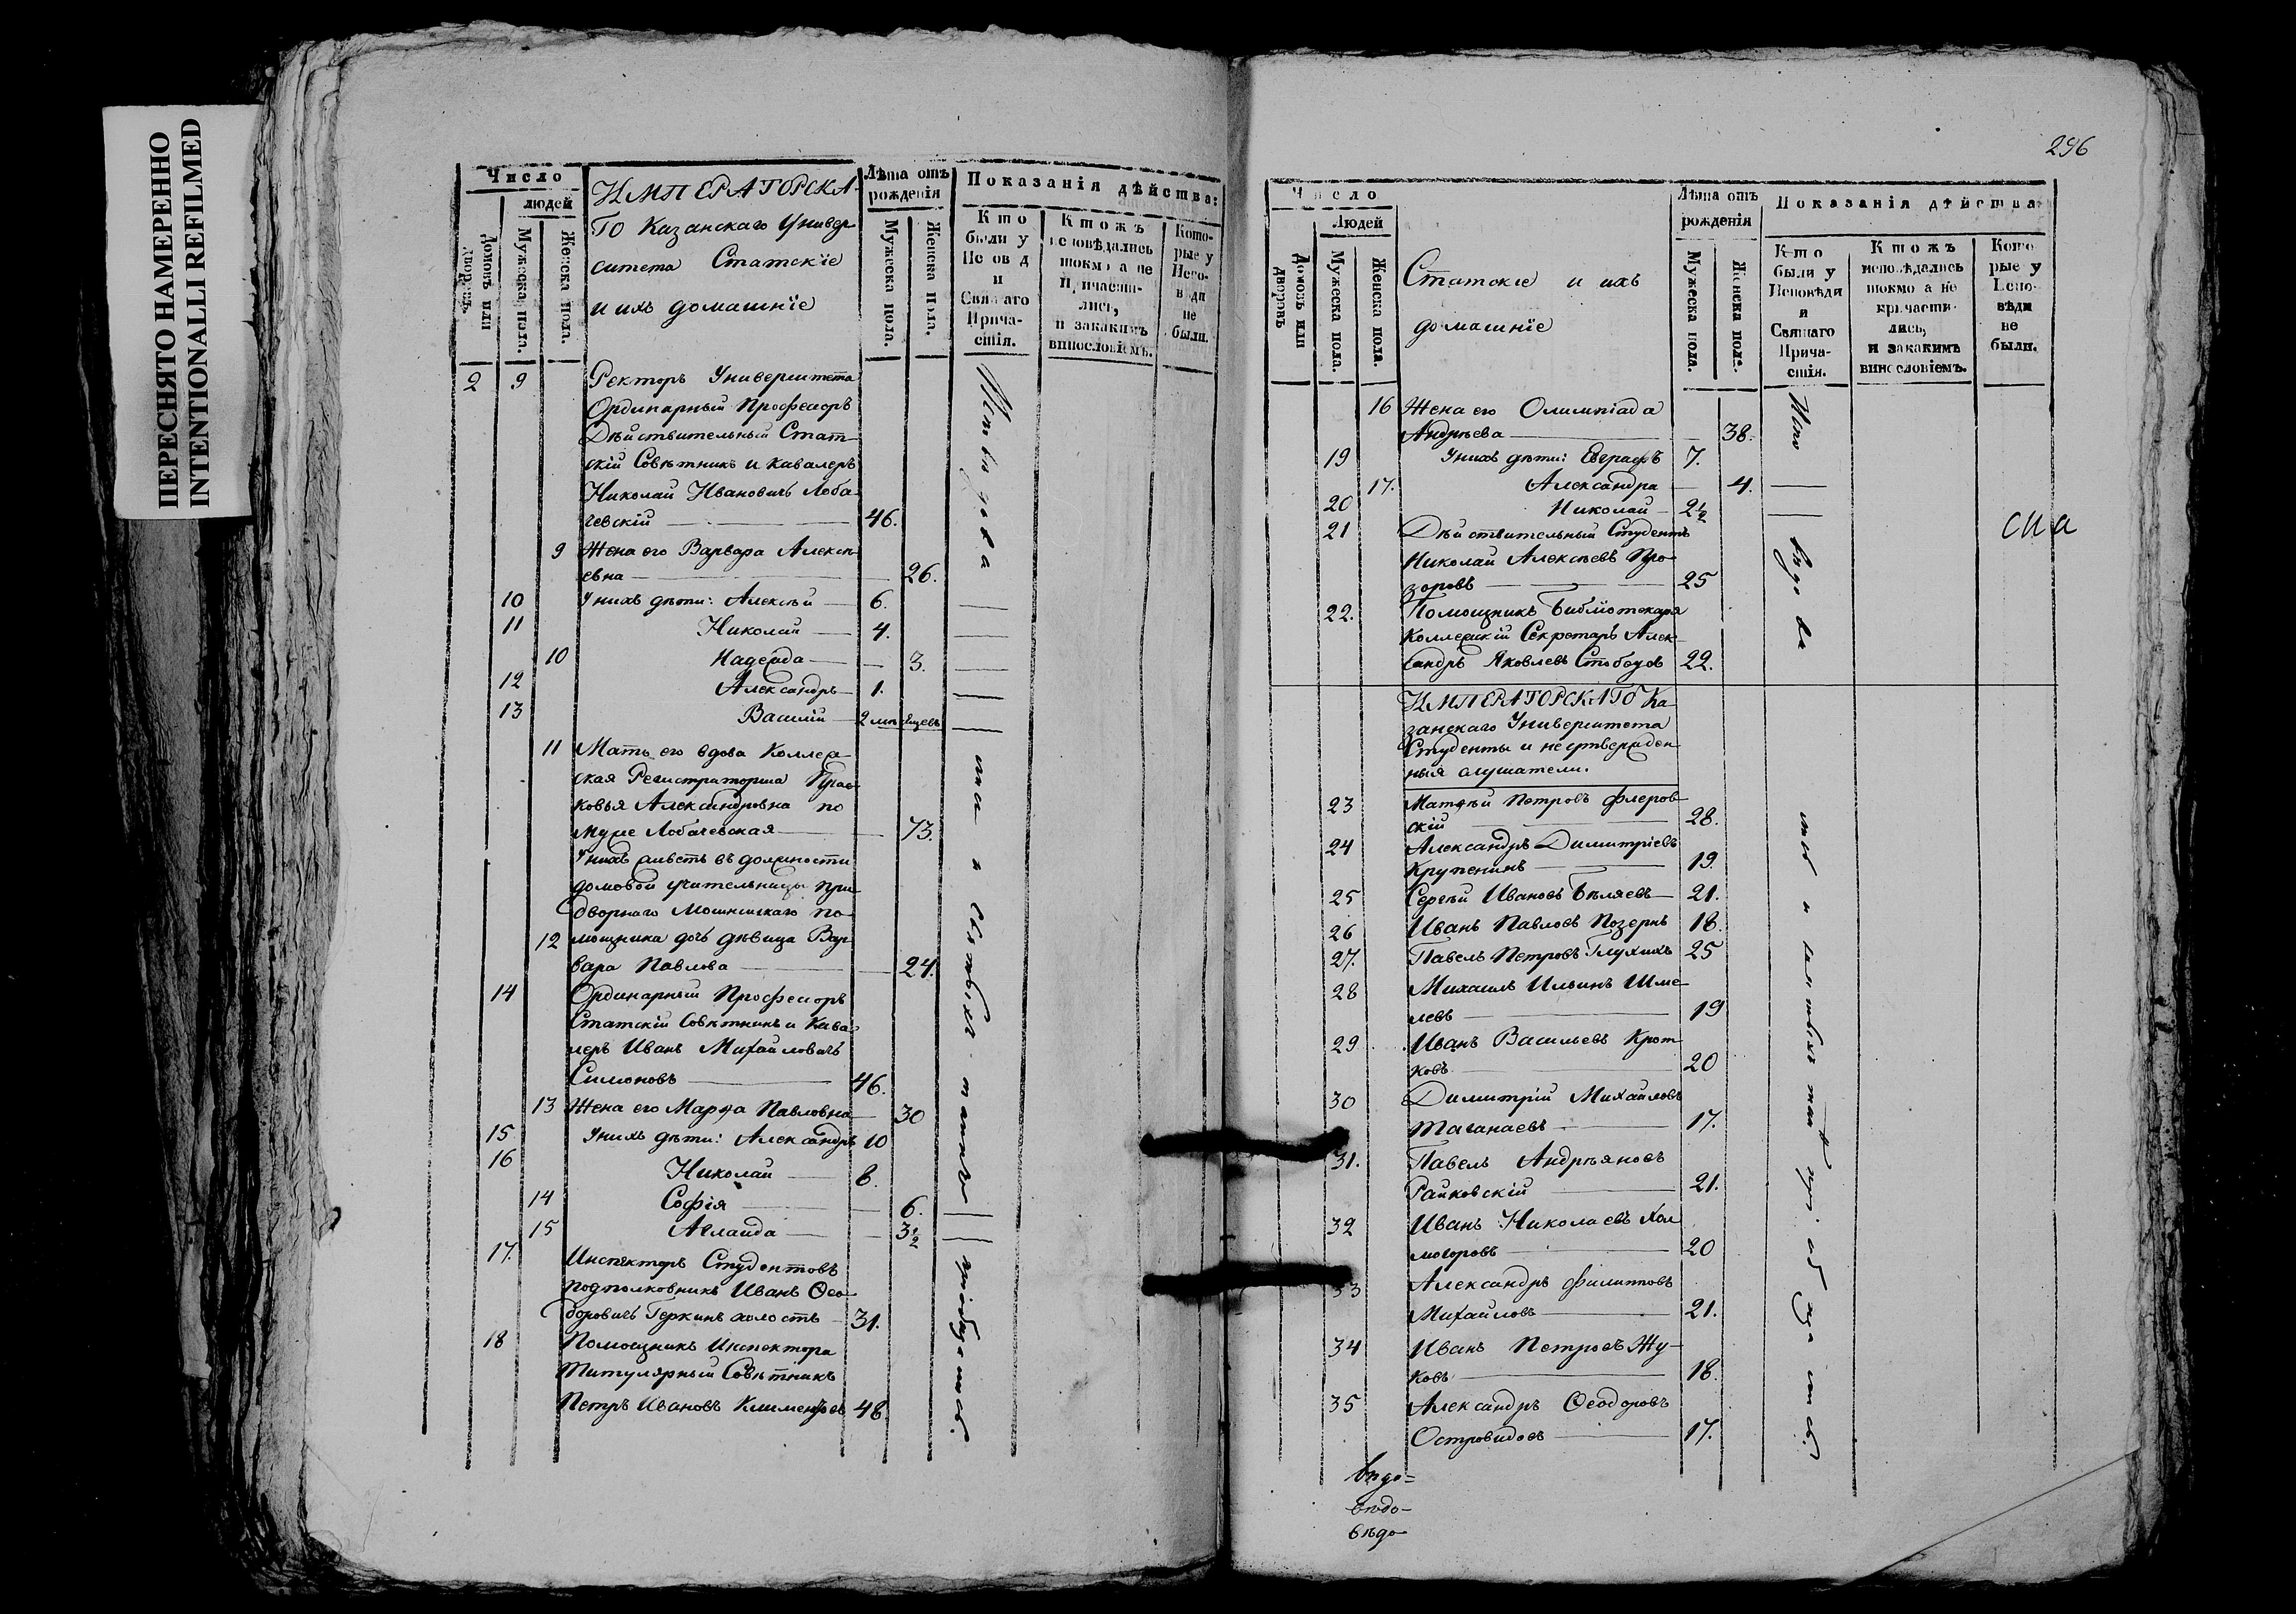 ПЕРЕСНЯТО НАМЕРЕННО
INTENTIONALLI REFILMED
Число
людей
Домовъ или дворовъ.
Мужеска пола.
Женска пола.
ИМПЕРАТОРСКА-
ГО Казанскаго Универ-
ситета Статскіе
и ихъ домашніе
Лѣта отъ
рожденія
Мужеска пола.
Женска пола.
Показанія дѣйства:
Кто
были у
Испов д
и
Святаго
Прича-
стія.
Ктожъ
исповѣдались
токмо а не
причасти-
лись,
и закакимъ
винословіемъ.
Кото-
рые у
Испо-
вѣди
не
были.
2 9 Ректоръ Университета
Ординарный Професоръ
Дѣйствительный Стат-
скій Совѣтникъ и Кавалеръ
Николай Ивановичъ Лоба-
чевскій 46.
9 Жена его Варвара Алексѣ-
евна 26.
10 Унихъ дѣти: Алексѣй 6.
11 Николай 4.
10 Надежда 3.
12 Александръ 1.
13 Василій 2 мѣсяцевъ
11 Мать его вдова Коллеж-
ская Регистраторша Прас-
ковья Александровна по
муже Лобачевская 73.
Унихъ живетъ въ должности
домовой учительницы при-
дворнаго по-
12 мощника дочь дѣвица Вар-
вара Павлова 24.
14 Ординарный Професоръ
Статскій Совѣтникъ и Кава-
леръ Иванъ Михайловичъ
Симоновъ 46.
13 Жена его Марѳа Павловна 30
15 Унихъ дѣти: Александръ 10
16 Николай 8.
14 Софія 6.
15 Аглаида 3½
17. Инспекторъ Студентовъ
подполковникъ Иванъ Ѳео-
доровичъ Геркинъ холостъ 31.
18 Помощникъ Инспектора
Титулярный Совѣтникъ
Петръ Ивановъ Климентовъ 48.
296
Число
Людей
Домовъ или дворовъ
Мужеска пола.
Женска пола.
Статскіе и ихъ
домашніе
Лѣта отъ
рожденія
Мужеска пола.
Женска пола.
Показанія дѣйства:
Кто
были у
Исповѣди
и
Святаго
Прича-
стія.
Ктожъ
исповѣдались
токмо а не
причасти-
лись,
и закакимъ
винословіемъ.
Кото
рые у
Испо-
вѣди
не
были.
16 Жена его Олимпіада
Андрѣева 38.
19 Унихъ дѣти: Евграфъ 7.
17. Александра 4.
20 Николай 2½
21 Дѣйствительный Студентъ
Николай Алексѣевъ Про-
зоровъ 25
22. Помощникъ Библіотекаря
Коллежскій Секретарь Алек-
сандръ Яковлевъ 22.
ИМПЕРАТОРСКАГО Ка-
занскаго Университета
Студенты и
ныя слушатели.
23 Матѳѣй Петровъ Флеров-
скій 28.
24 Александръ Димитріевъ
Крупенинъ 19.
25 Сергѣй Ивановъ Бѣляевъ 21.
26 Иванъ Павловъ Позернъ 18.
27. Павелъ Петровъ Глухихъ 25
28 Михаилъ Ильинъ Шме-
левъ 19
29 Иванъ Васильевъ Крот-
ковъ 20
30 Димитрій Михайловъ
Таганаевъ 17.
31. Павелъ Андрѣяновъ
Райковскій 21.
32 Иванъ Николаевъ Хол
могоровъ 20
33 Александръ Филиповъ
Михайловъ 21.
34 Иванъ Петровъ Жу-
ковъ 18.
35 Александръ Ѳеодоровъ
Островидовъ 17.
вѣдо-
вѣдо-